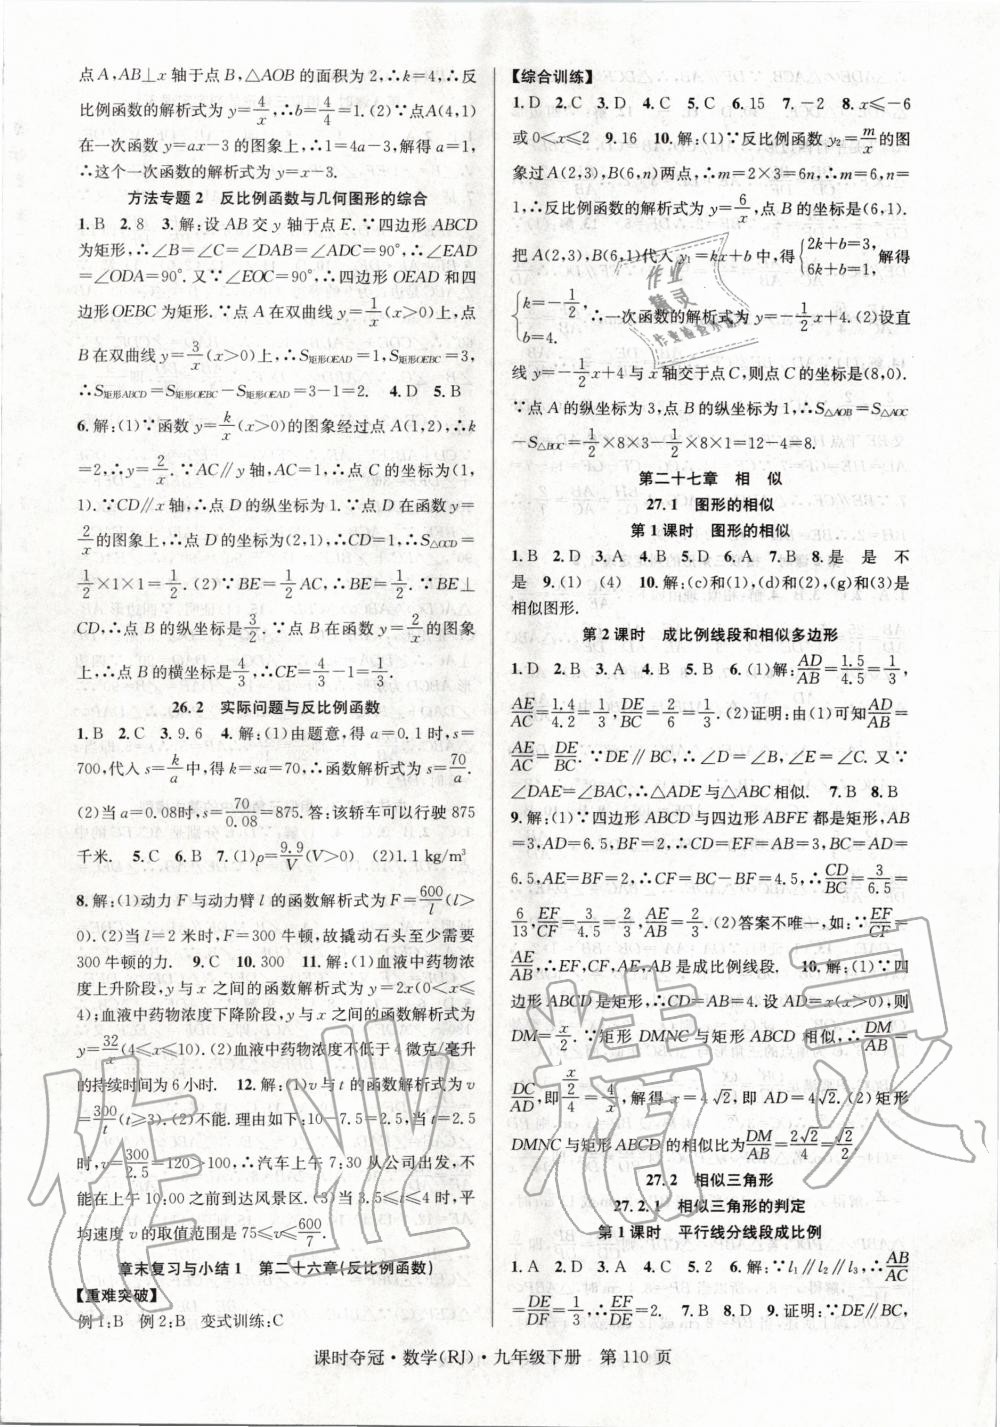 点A,AB⊥x轴于点B,△AOB的面积为2,∴k=4,∴反
比例函数的解析式为y=4/x,∴b=4/4=1.(2)∵点A(4,1)
在一次函数y=ax-3的图象上,∴1=4a-3,解得a=1,
∴这个一次函数的解析式为y=x-3.
方法专题2 反比例函数与几何图形的综合
1.B 2.8 3.解:设AB交y轴于点E.∵四边形ABCD
为矩形,∴∠B=∠C=∠DAB=∠ADC=90°,∴∠EAD
=∠ODA=90°.又∵∠EOC=90°,∴四边形OEAD和四
边形OEBC为矩形.∵点A在双曲线y=1/x(x>0)上,点
B在双曲线y=3/x(x>0)上,∴S矩形OEAD=1,S矩形OEBC=3,
∴S矩形ABCD=S矩形OEBC-S矩形OEAD=3-1=2. 4.D 5.B
6.解:(1)∵函数y=k/x(x>0)的图象经过点A(1,2),∴k
=2,∴y=2/x.∵AC∥y轴,AC=1,∴点C的坐标为(1,
1).∵CD∥x轴,∴点D的纵坐标为1.∵点D在函数y=
2/x的图象上,∴点D的坐标为(2,1),∴CD=1,∴S△OCD=
1/2×1×1=1/2.(2)∵BE=1/2AC,∴BE=1/2.∵BE⊥
CD,∴点B的纵坐标是3/2.∵点B在函数y=2/x的图象
上,∴点B的横坐标是4/3,∴CE=4/3-1=1/3.
26.2 实际问题与反比例函数
1.B 2.C 3.9.6 4.解:(1)由题意,得a=0.1时,s=
700,代入s=k/a中,得k=sa=70,∴函数解析式为s=70/a.
(2)当a=0.08时,s=70/0.08=875.答:该轿车可以行驶875
千米. 5.C 6.B 7.(1)ρ=9.9/V(V>0) (2)1.1 kg/m³
8.解:(1)动力F与动力臂l的函数解析式为F=600/l(l>
0).(2)当l=2米时,F=300牛顿,故撬动石头至少需要
300牛顿的力. 9.C 10.300 11.解:(1)血液中药物浓
度上升阶段,y与x之间的函数解析式为y=2x(0<x≤
4);血液中药物浓度下降阶段,y与x之间的函数解析式为
y=32/x(4≤x≤10).(2)血液中药物浓度不低于4微克/毫升
的持续时间为6小时. 12.解:(1)v与t的函数解析式为v
=300/t(t≥3).(2)不能.理由如下:10-7.5=2.5,当t=2.5
时,v=300/2.5=120>100,∴汽车上午7:30从公司出发,不
能在上午10:00之前到达风景区.(3)当3.5≤t≤4时,平
均速度v的取值范围是75≤v≤600/7.
章末复习与小结1 第二十六章(反比例函数)
【重难突破】
例1:B 例2:B 变式训练:C
【综合训练】
1.D 2.C 3.D 4.C 5.C 6.15 7.-2 8.x≤-6
或0<x≤2 9.16 10.解:(1)∵反比例函数y₂=m/x的图
象过点A(2,3),B(6,n)两点,∴m=2×3=6n,∴m=6,n
=1,∴反比例函数的解析式为y=6/x,点B的坐标是(6,1).
把A(2,3),B(6,1)代入y₁=kx+b中,得{2k+b=3,6k+b=1,解得
{k=-1/2,b=4.∴一次函数的解析式为y=-1/2x+4.(2)设直
线y=-1/2x+4与x轴交于点C,则点C的坐标是(8,0).
∵点A的纵坐标为3,点B的纵坐标为1,∴S△AOB=S△AOC
-S△BOC=1/2×8×3-1/2×8×1=12-4=8.
第二十七章 相 似
27.1 图形的相似
第1课时 图形的相似
1.B 2.D 3.A 4.B 5.D 6.A 7.B 8.是 是 不
是 9.(1) (4) 10.解:(c)和(1),(d)和(2),(g)和(3)是
相似图形.
第2课时 成比例线段和相似多边形
1.D 2.D 3.A 4.B 5.B 6.(1)解:AD/AB=1.5/4.5=1/3,
AE/AC=1.4/4.2=1/3,DE/BC=2/6=1/3.(2)证明:由(1)可知AD/AB=
AE/AC=DE/BC.∵DE∥BC,∴∠D=∠B,∠E=∠C.又∵
∠DAE=∠BAC,∴△ADE与△ABC相似. 7.B 8.B
9.解:(1)∵四边形ABCD与四边形ABFE都是矩形,AB
=3,AD=6.5,BF=2,∴CD=EF=AB=3,BC=AD=
6.5,AE=BF=2,∴CF=BC-BF=4.5,∴CD/BC=3/6.5=
6/13,EF/CF=3/4.5=2/3,AE/AB=2/3.(2)答案不唯一,如:∵EF/CF=
AE/AB,∴EF,CF,AE,AB是成比例线段. 10.解:(1)∵四
边形ABCD是矩形,∴CD=AB=4.设AD=x(x>0),则
DM=x/2.∵矩形DMNC与矩形ABCD相似,∴DM/AB=
DC/AD,即(x/2)/4=4/x,解得x=4√2,即AD=4√2.(2)矩形
DMNC与矩形ABCD的相似比为DM/AB=2√2/4=√2/2.
27.2 相似三角形
27.2.1 相似三角形的判定
第1课时 平行线分线段成比例
1.A 2.D 3.C 4.A 5.2 6.解:∵l₁∥l₂∥l₃,∴AB/AC
=DE/DF=1/3,∴DE/EF=2. 7.B 8.D 9.证明:∵DE∥BC,
课时夺冠·数学(RJ)·九年级下册 第110页
作业精灵